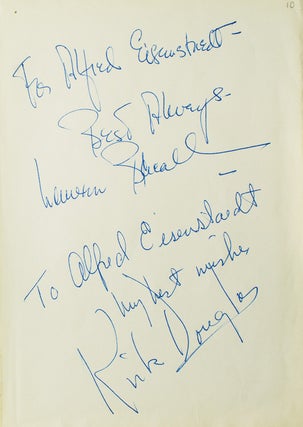 10
For Alfred Eisenstaedt -
Best Always -
Lauren Bacall
To Alfred Eisenstaedt
My best wishes
Kirk Douglas